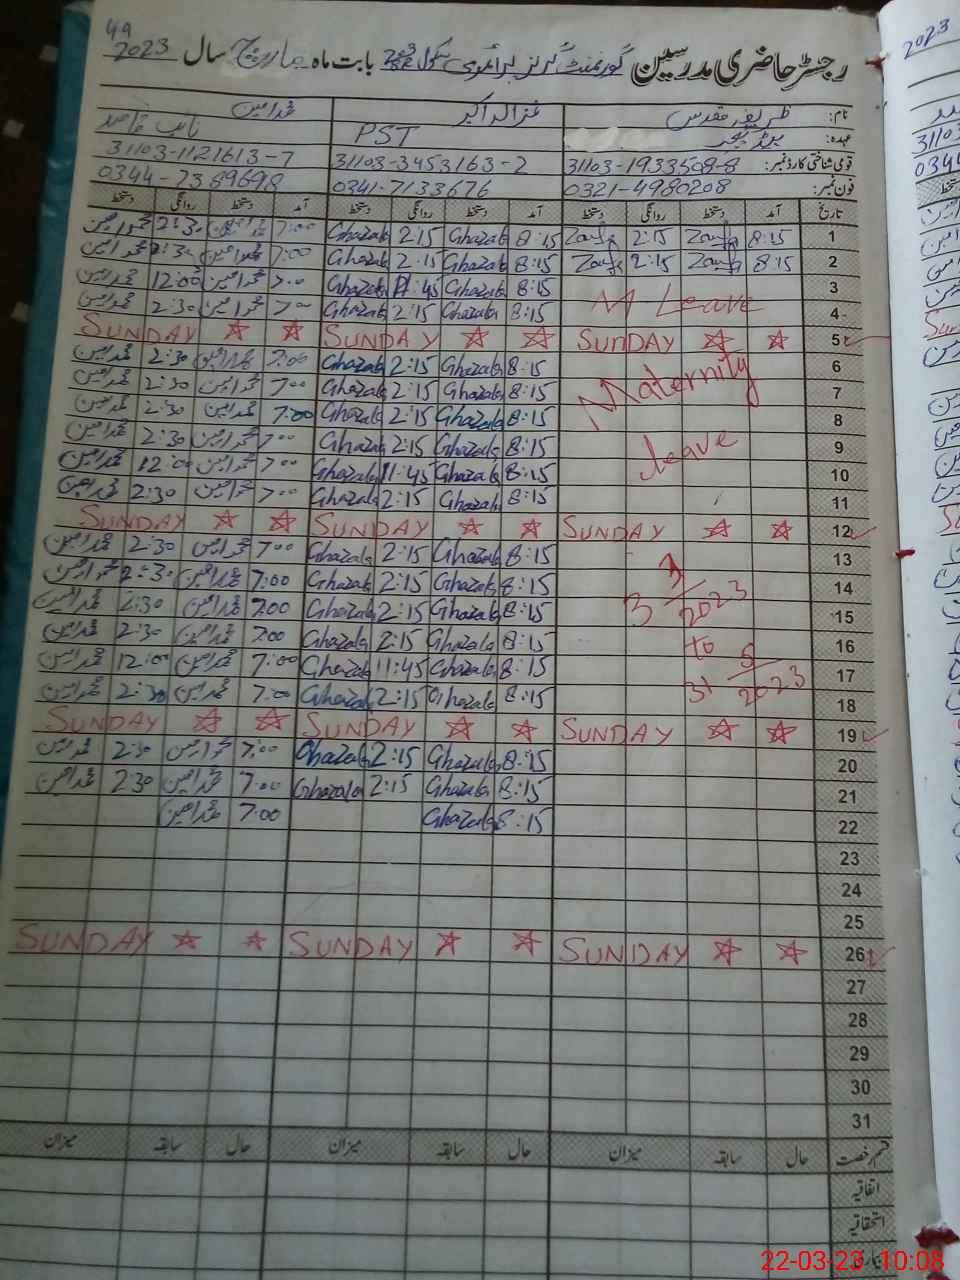 49
2023
رجسٹر حاضری مدرسین گورنمنٹ گرلز پرائمری سکول بابت ماہ مارچ سال 2023
نام: ظریفہ مقدس غزالہ اکبر محمد امین
عہدہ: ہیڈ ٹیچر PST نائب قاصد
قومی شناختی کارڈ نمبر: 31103-1933508-8 31103-3453163-2 31103-1121613-7
فون نمبر: 0321-4980208 0341-7133676 0344-7389698
تاریخ آمد دستخط روانگی دستخط آمد دستخط روانگی دستخط آمد دستخط روانگی دستخط
1 8:15 2:15 8:15 Ghazala 2:15 Ghazala 7:00 محمد امین 2:30 محمد امین
2 8:15 2:15 8:15 Ghazala 2:15 Ghazala 7:00 محمد امین 2:30 محمد امین
3 8:15 Ghazala 11:45 Ghazala 7:00 محمد امین 12:00 محمد امین
4 M Leave 8:15 Ghazala 2:15 Ghazala 7:00 محمد امین 2:30 محمد امین
5 SUNDAY SUNDAY SUNDAY
6 8:15 Ghazala 2:15 Ghazala 7:00 محمد امین 2:30 محمد امین
7 Maternity 8:15 Ghazala 2:15 Ghazala 7:00 محمد امین 2:30 محمد امین
8 8:15 Ghazala 2:15 Ghazala 7:00 محمد امین 2:30 محمد امین
9 leave 8:15 Ghazala 2:15 Ghazala 7:00 محمد امین 2:30 محمد امین
10 8:15 Ghazala 11:45 Ghazala 7:00 محمد امین 12:00 محمد امین
11 8:15 Ghazala 2:15 Ghazala 7:00 محمد امین 2:30 محمد امین
12 SUNDAY SUNDAY SUNDAY
13 8:15 Ghazala 2:15 Ghazala 7:00 محمد امین 2:30 محمد امین
14 8:15 Ghazala 2:15 Ghazala 7:00 محمد امین 2:30 محمد امین
15 3 3/2023 8:15 Ghazala 2:15 Ghazala 7:00 محمد امین 2:30 محمد امین
16 to 8:15 Ghazala 2:15 Ghazala 7:00 محمد امین 2:30 محمد امین
17 31 5/2023 8:15 Ghazala 11:45 Ghazala 7:00 محمد امین 12:00 محمد امین
18 8:15 Ghazala 2:15 Ghazala 7:00 محمد امین 2:30 محمد امین
19 SUNDAY SUNDAY SUNDAY
20 8:15 Ghazala 2:15 Ghazala 7:00 محمد امین 2:30 محمد امین
21 8:15 Ghazala 2:15 Ghazala 7:00 محمد امین 2:30 محمد امین
22 8:15 Ghazala 7:00 محمد امین
23
24
25
26 SUNDAY SUNDAY SUNDAY
27
28
29
30
31
قسم رخصت حال سابقہ میزان حال سابقہ میزان حال سابقہ میزان
اتفاقیہ
استحقاقیہ
2023
31103
0344
22-03-23 10:08